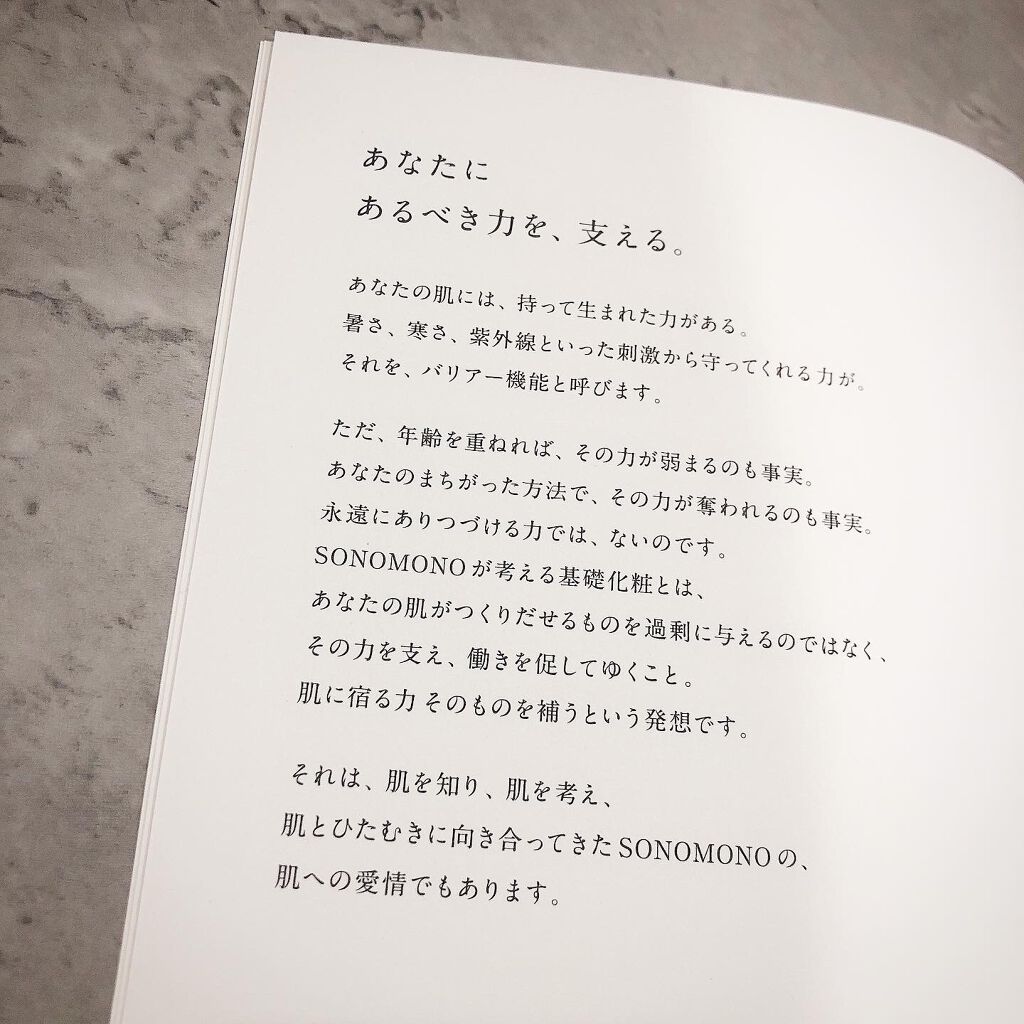 あなたに
あるべき力を、支える。
あなたの肌には、持って生まれた力がある。
暑さ、寒さ、紫外線といった刺激から守ってくれる力が。
それを、バリアー機能と呼びます。
ただ、年齢を重ねれば、その力が弱まるのも事実。
あなたのまちがった方法で、その力が奪われるのも事実。
永遠にありつづける力では、ないのです。
SONOMONOが考える基礎化粧とは、
あなたの肌がつくりだせるものを過剰に与えるのではなく、
その力を支え、働きを促してゆくこと。
肌に宿る力 そのものを補うという発想です。
それは、肌を知り、肌を考え、
肌とひたむきに向き合ってきたSONOMONOの、
肌への愛情でもあります。